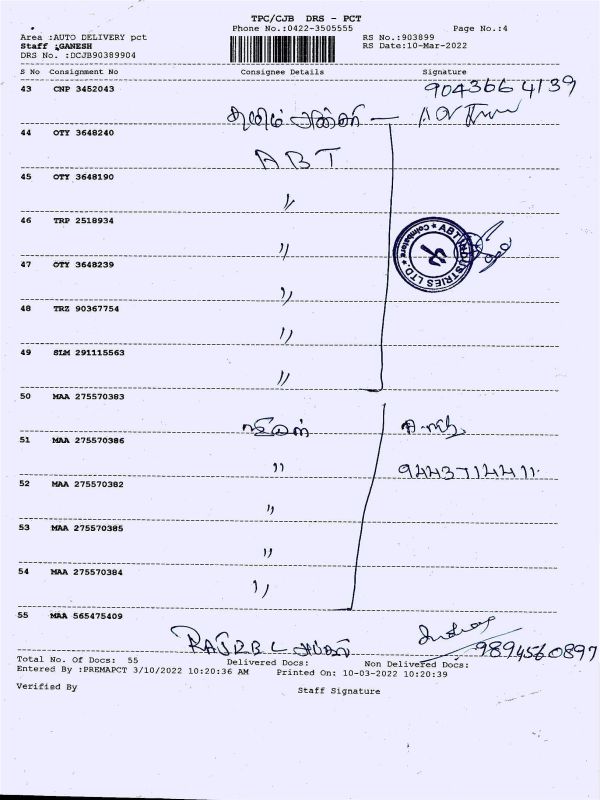 TPC/CJB DRS - PCT
Phone No.:0422-3505555 Page No.:4
Area :AUTO DELIVERY pct RS No.:903899
Staff :GANESH RS Date:10-Mar-2022
DRS No. :DCJB90389904
S No Consignment No Consignee Details Signature
43 CNP 3452043 9043664139
44 OTY 3648240
ABT
45 OTY 3648190
"
46 TRP 2518934
ABT INDUSTRIES LTD. * Coimbatore *
"
47 OTY 3648239
"
48 TRZ 90367754
"
49 SLM 291115563
"
50 MAA 275570383
51 MAA 275570386
" 9443714411
52 MAA 275570382
"
53 MAA 275570385
"
54 MAA 275570384
"
55 MAA 565475409
9894560897
Total No. Of Docs: 55 Delivered Docs: Non Delivered Docs:
Entered By :PREMAPCT 3/10/2022 10:20:36 AM Printed On: 10-03-2022 10:20:39
Verified By Staff Signature